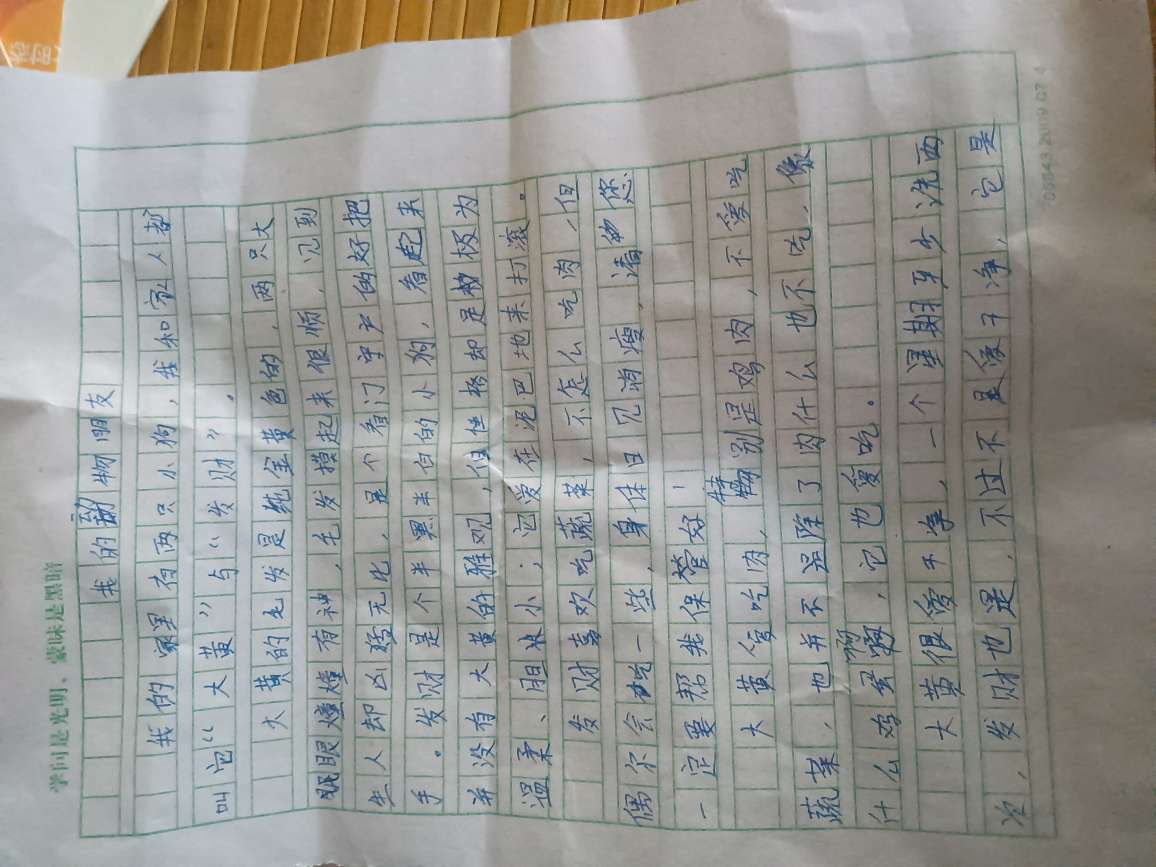 学问是光明，蒙昧是黑暗
我的动物朋友
我的家里有两只小狗，我和家人都
叫它“大黄”与“发财”。
大黄的毛发是纯金黄色的，两只大
眼眼炯炯有神，毛发摸起来很顺，见到
生人却凶猛无比，是个看门守户的好把
手。发财是个半黑半白的小狗，看起来
并没有大黄的雅观，但性格却是极为
温柔、胆怯小；它爱在泥巴地来打滚。
发财喜欢吃蔬菜，不怎么吃肉，但
偶尔会吃一些，身体日见消瘦，请您
一定要帮我保管好！
大黄贪吃肉，特别是鸡肉，不爱吃
蔬菜，也并不是除了肉什么也不吃，像
什么鸡蛋啊，它也爱吃。
大黄很爱干净，一个星期至少洗两
次，发财也是，不过不是爱干净，它是
706843.2019.07.4